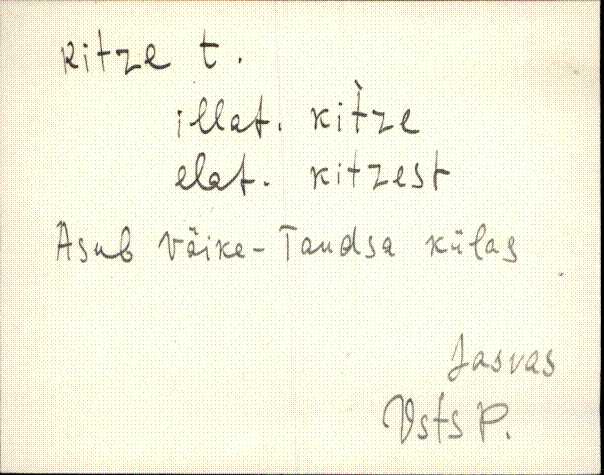 Kitze t.
illat. kìtze
elat. kitzest
Asub Väike-Taudsa külas
Jasvas
Vsts P.